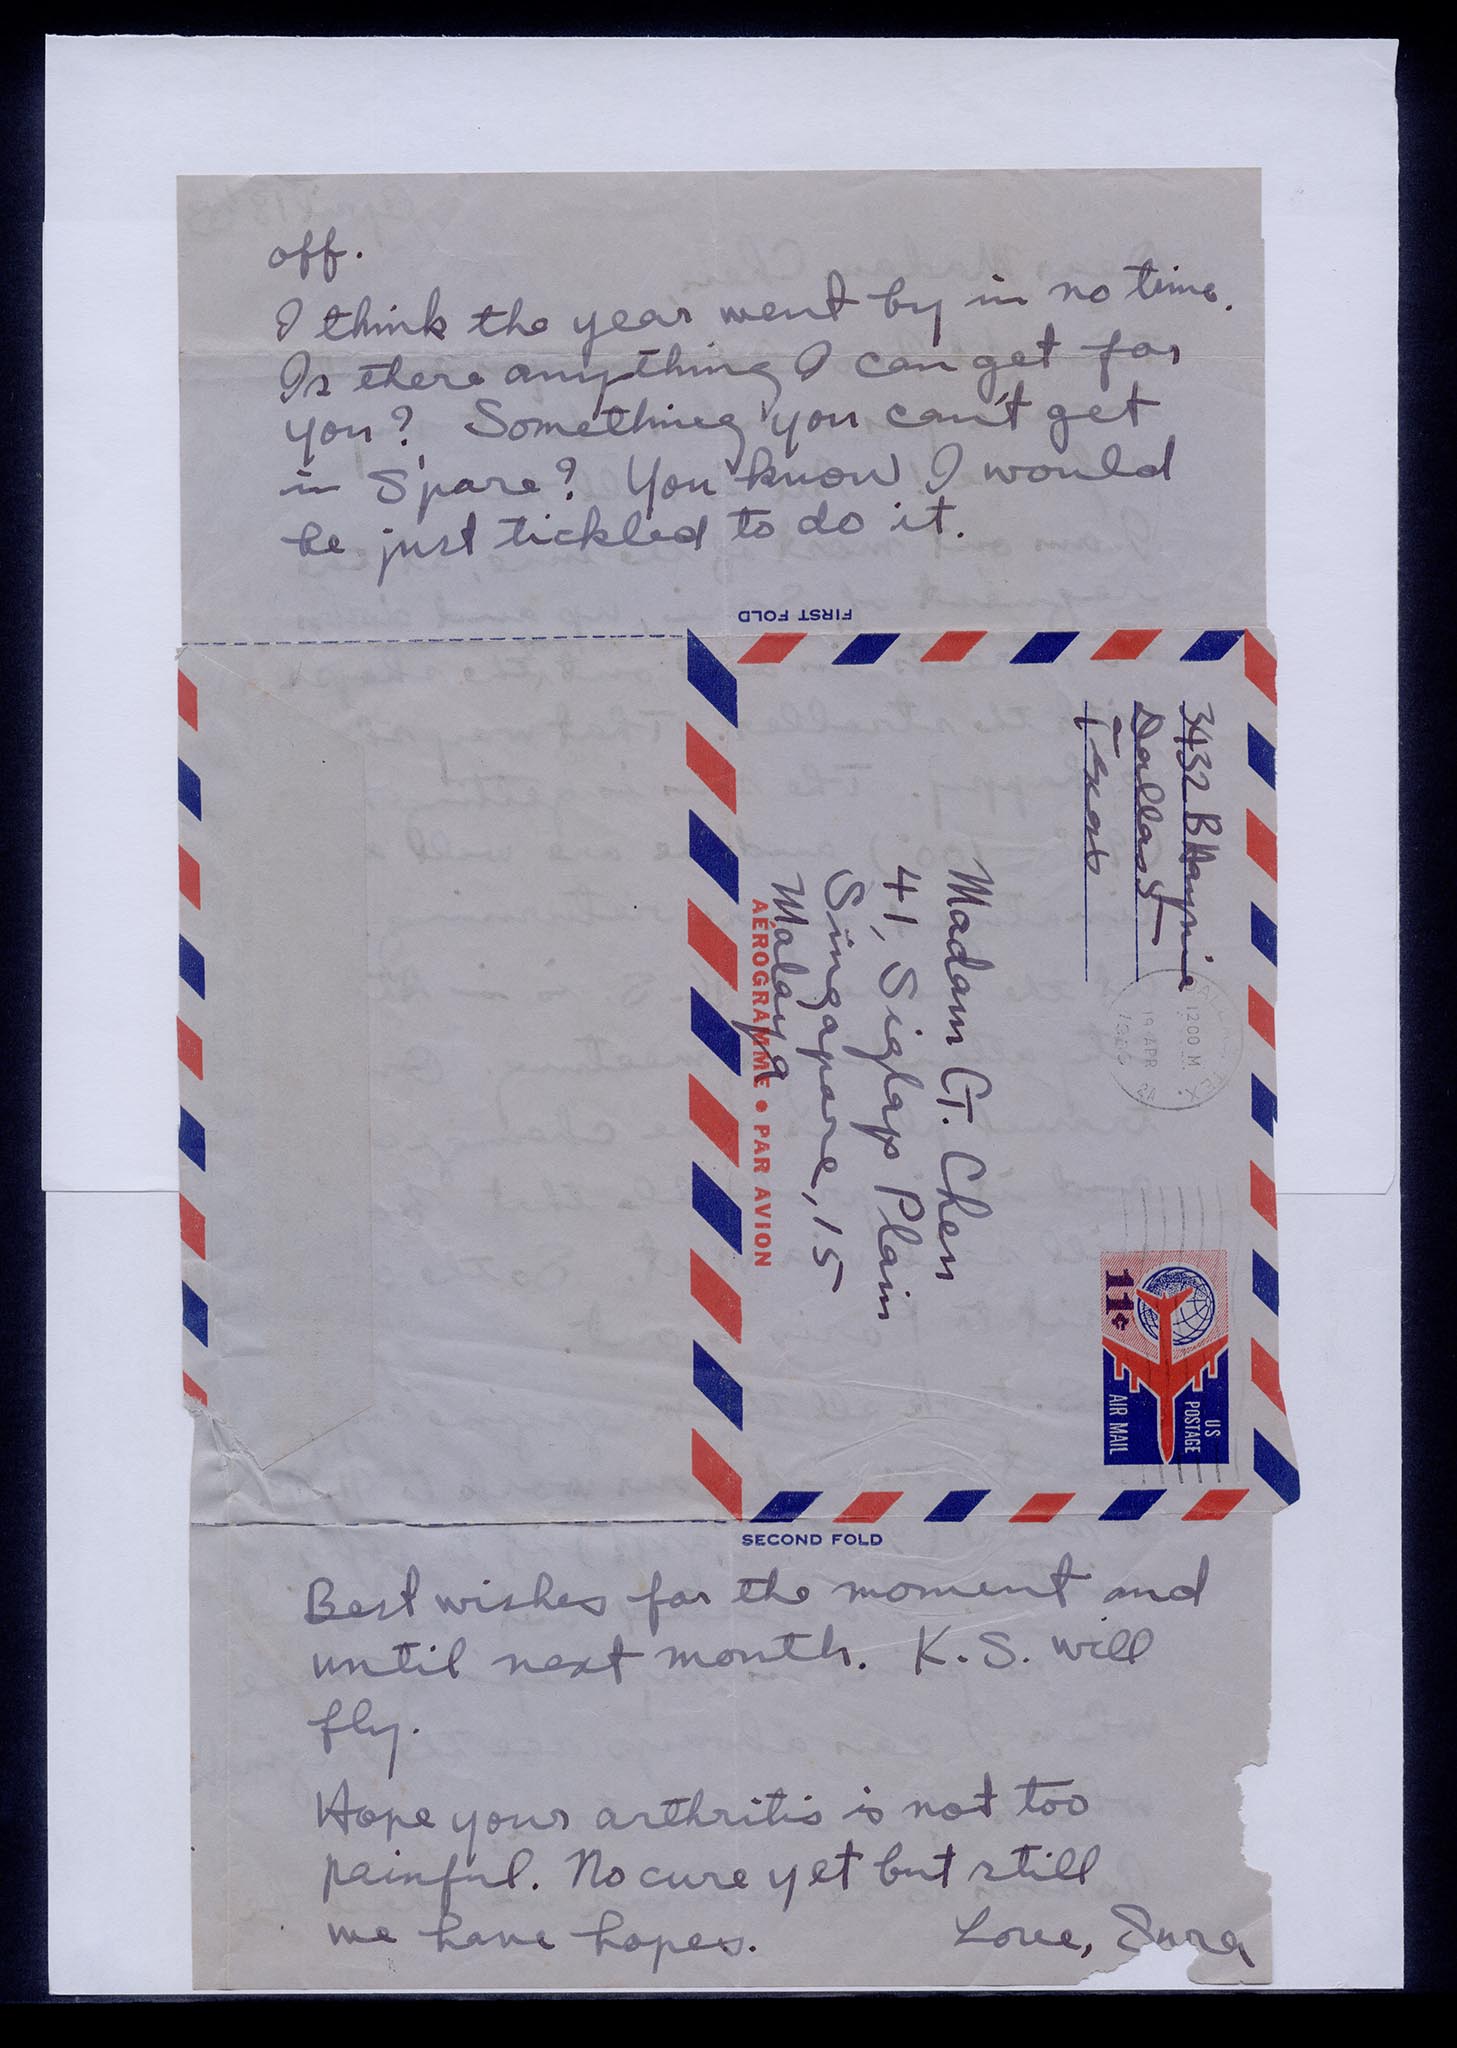 off.
I think the year went by in no time.
Is there anything I can get for
you? Something you can't get
in S'pore? You know I would
be just tickled to do it.
FIRST FOLD
3432 B Haynie
Dallas 5
Texas
12 00 M
19 APR
TEX
Madam G.T. Chen
41, Siglap Plain
Singapore, 15
Malaya
AÉROGRAMME • PAR AVION
11¢
US
POSTAGE
AIR MAIL
SECOND FOLD
Best wishes for the moment and
until next month. K.S. will
fly.
Hope your arthritis is not too
painful. No cure yet but still
we have hopes. Love,